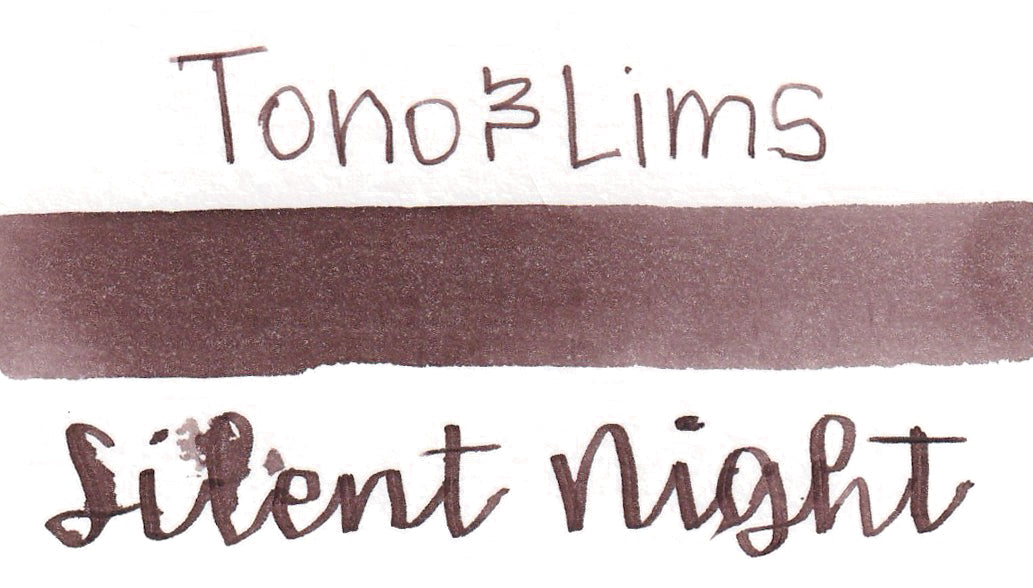 Tono & Lims
Silent Night